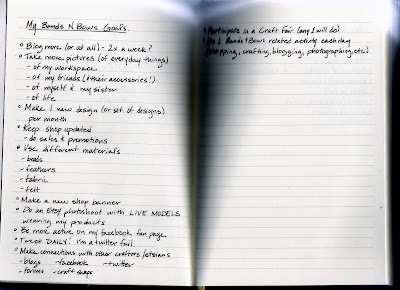 My Bands N Bows Goals.
° Blog more (or at all) - 2x a week?
° Take more pictures (of everyday things)
- of my workspace
- of my friends (+ their accessories!)
- of myself & my sister
- of life
° Make 1 new design (or set of designs)
per month
° Keep shop updated
- do sales & promotions
° Use different materials
- beads
- feathers
- fabric
- felt
° Make a new shop banner
° Do an Etsy photoshoot with LIVE MODELS
wearing my products
° Be more active on my facebook fan page
° Tweet DAILY! I'm a twitter fail.
° Make connections with other crafters/etsians
- blogs - facebook - twitter
- forums - craft swaps
° Participate in a Craft Fair (any I will do)
° Do 1 Bands + Bows related activity each day
(shopping, crafting, blogging, photographing, etc.)